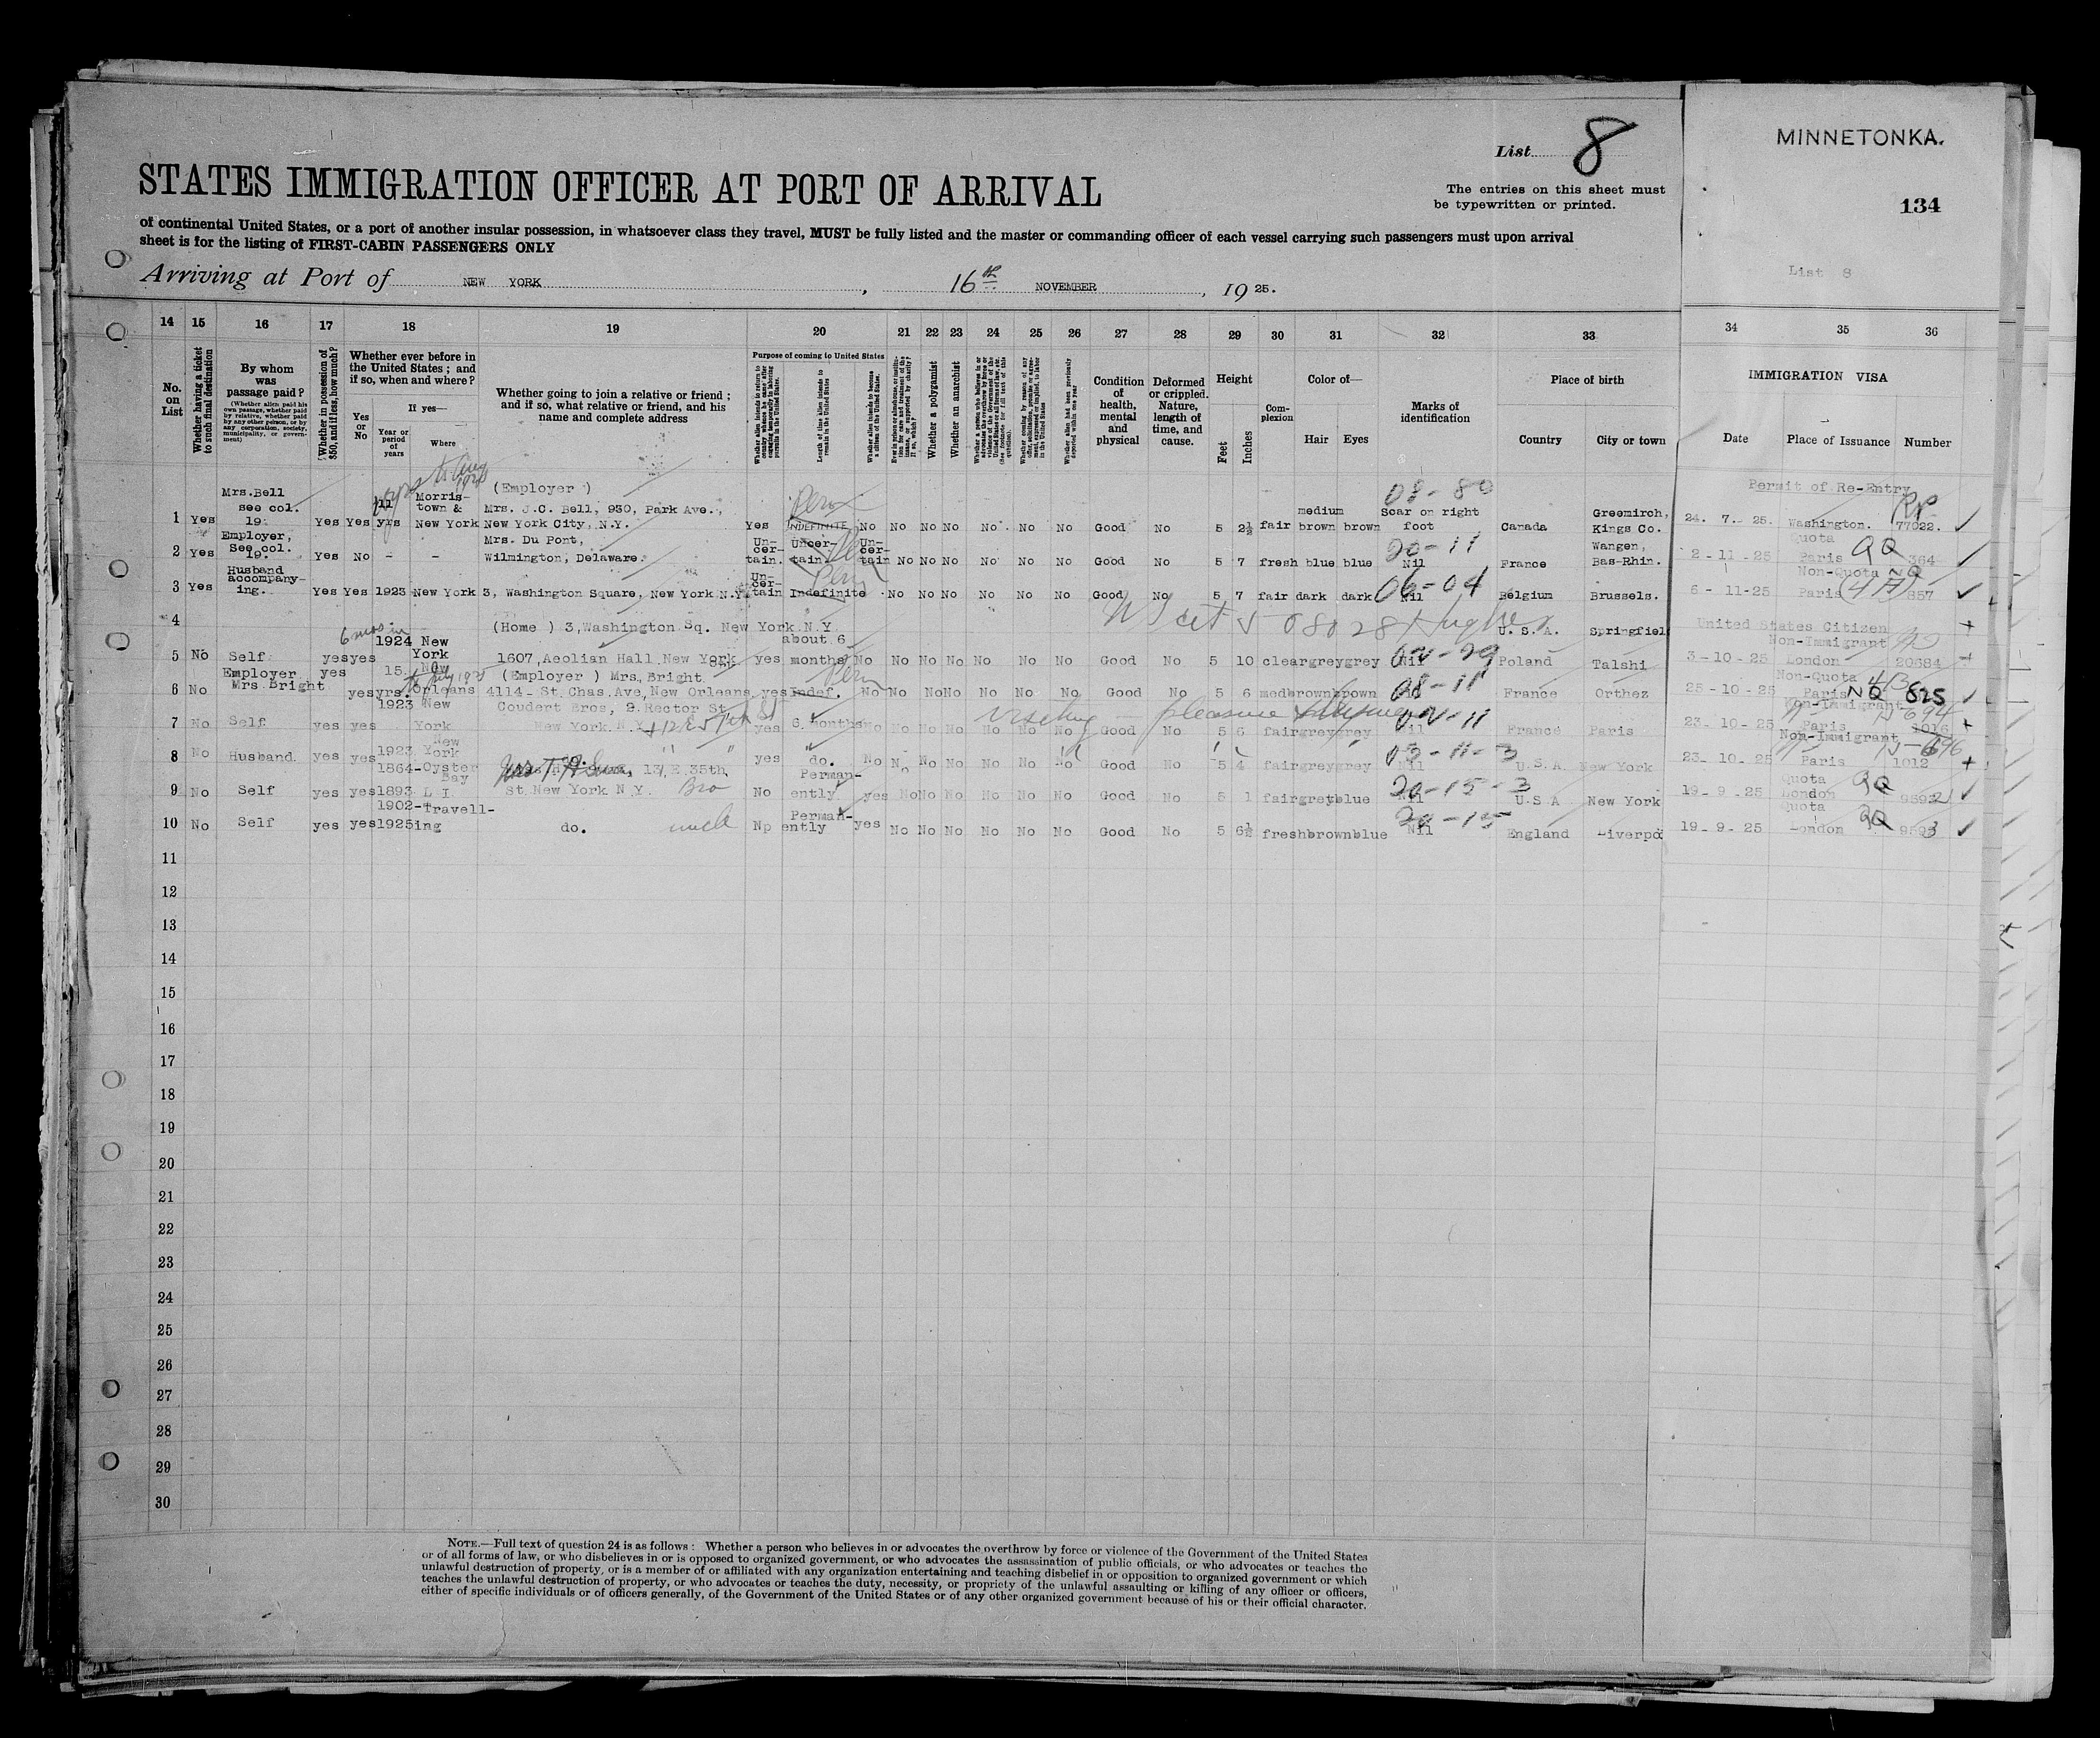 List 8
MINNETONKA.
STATES IMMIGRATION OFFICER AT PORT OF ARRIVAL
The entries on this sheet must
be typewritten or printed.
134
of continental United States, or a port of another insular possession, in whatsoever class they travel, MUST be fully listed and the master or commanding officer of each vessel carrying such passengers must upon arrival
sheet is for the listing of FIRST-CABIN PASSENGERS ONLY
List 8
Arriving at Port of NEW YORK, 16th NOVEMBER, 1925.
14 15 16 17 18 19 20 21 22 23 24 25 26 27 28 29 30 31 32 33 34 35 36
No. on List
Whether having a ticket to such final destination
By whom was passage paid?
(Whether alien paid his own passage, whether paid by relative, whether paid by any other person, or by any corporation, society, municipality, or government)
Whether in possession of $50, and if less, how much?
Whether ever before in the United States; and if so, when and where?
Yes or No
If yes—
Year or period of years
Where
Whether going to join a relative or friend; and if so, what relative or friend, and his name and complete address
Purpose of coming to United States
Length of time alien intends to remain in the United States
Whether alien intends to become a citizen of the United States.
Whether a polygamist
Whether an anarchist
Whether alien had been previously deported within one year
Condition of health, mental and physical
Deformed or crippled. Nature, length of time, and cause.
Height
Feet
Inches
Complexion
Color of—
Hair Eyes
Marks of identification
Place of birth
Country City or town
IMMIGRATION VISA
Date Place of Issuance Number
Permit of Re-Entry
Mrs.Bell see col. 19. (Employer) medium 08-80
1 Yes Yes Yes 11 yrs Morristown & New York Mrs. J.C. Bell, 930, Park Ave., New York City, N.Y. Yes INDEFINITE No No No No No No No Good No 5 2½ fair brown brown Scar on right foot Canada Greemirch, Kings Co. 24. 7. 25. Washington. 77022.
2 Yes Employer, See col. 19. Yes No - - Mrs. Du Pont, Wilmington, Delaware. Un-cer-tain. Uncer-tain Un-cer-tain No No No No No No Good No 5 7 fresh blue blue 20-11 Nil France Wangen, Bas-Rhin. 2-11-25 Quota Paris QQ 364
3 Yes Husband accompany-ing. Yes Yes 1923 New York 3, Washington Square, New York N.Y. Un-cer-tain Indefinite No No No No No No Good No 5 7 fair dark dark 06-04 Nil Belgium Brussels. 6-11-25 Non-Quota NQ Paris 857
4 (Home) 3,Washington Sq. New York N.Y U.S.A. Springfiel United States Citizen
5 No Self yes yes 6 mos in 1924 New York 1607,Aeolian Hall,New York yes about 6 months No No No No No No No Good No 5 10 clear grey grey Nil Poland Talshi 3-10-25 Non-Immigrant London 20684
6 No Employer Mrs Bright yes yes 15 yrs. New Orleans (Employer) Mrs, Bright. 4114- St.Chas.Ave,New Orleans, yes Indef. No No No No No No No Good No 5 6 med brown brown 08-11 France Orthez 25-10-25 Non-Quota Paris NQ 625
7 No Self yes yes 1923 New York Coudert Bros, 2.Rector St New York N.Y. yes 6 months No No No No No No No Good No 5 6 fair grey grey Nil France Paris 23-10-25 Non-Immigrant Paris 1016
visiting pleasure
8 No Husband yes yes 1923 New York " " yes do. No No No No No No No Good No 5 4 fair grey grey 03-11-3 Nil U.S.A. New York 23-10-25 Non-Immigrant Paris 1012
9 No Self yes yes 1864-1893 Oyster Bay L I 137,E.35th, St.New York N Y. Bro No Perman-ently yes No No No No No No Good No 5 1 fair grey blue 20-15-3 Nil U S A New York 19-9-25 Quota London QQ 9592
10 No Self yes yes 1902-1925 Travell-ing do. uncle Np Perman-ently yes No No No No No No Good No 5 6½ fresh brown blue 20-15 Nil England Liverpo 19-9-25 Quota London QQ 9593
11
12
13
14
15
16
17
18
19
20
21
22
23
24
25
26
27
28
29
30
NOTE.—Full text of question 24 is as follows: Whether a person who believes in or advocates the overthrow by force or violence of the Government of the United States
or of all forms of law, or who disbelieves in or is opposed to organized government, or who advocates the assassination of public officials, or who advocates or teaches the
unlawful destruction of property, or is a member of or affiliated with any organization entertaining and teaching disbelief in or opposition to organized government or which
teaches the unlawful destruction of property, or who advocates or teaches the duty, necessity, or propriety of the unlawful assaulting or killing of any officer or officers,
either of specific individuals or of officers generally, of the Government of the United States or of any other organized government because of his or their official character.